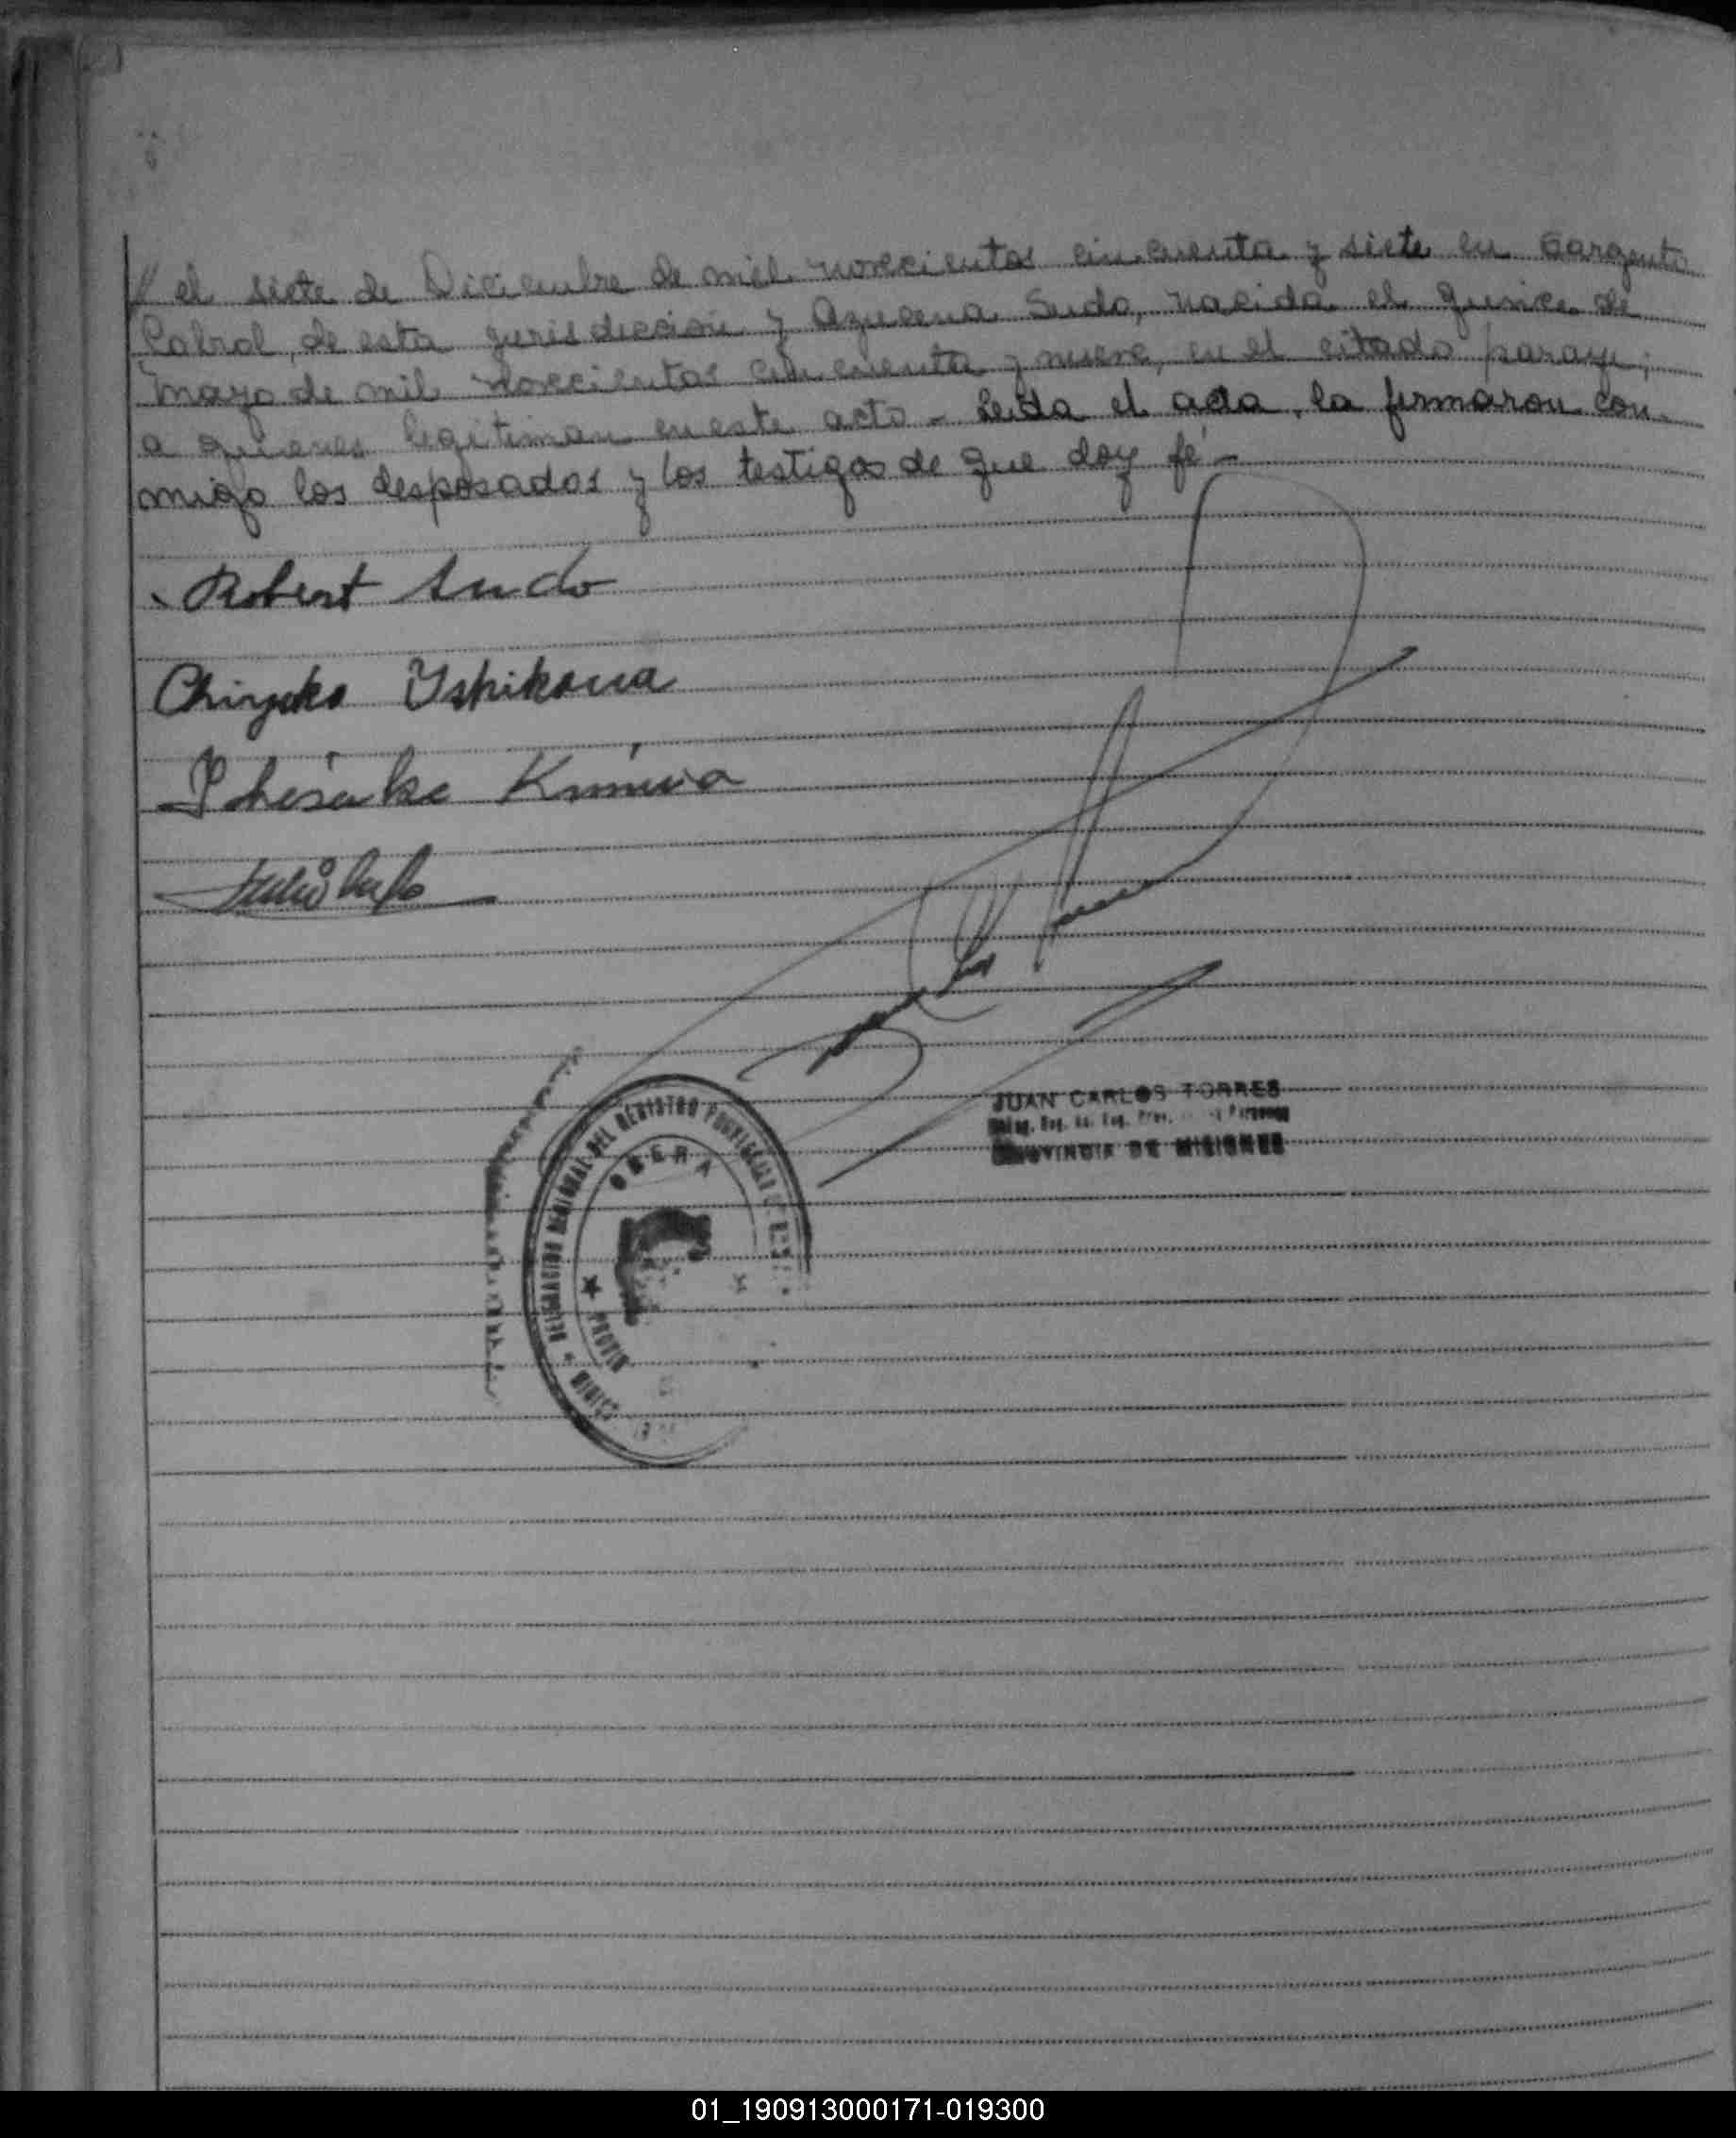 el siete de Diciembre de mil novecientos cincuenta y siete en Sargento
Cabral, de esta jurisdiccion y Azucena Sudo, nacida el quince de
mayo de mil novecientos cincuenta y nueve, en el citado paraje;
a quienes legitiman en este acto - Leida el acta, la firmaron con-
migo los desposados y los testigos de que doy fé -
Robert Sudo
Chiyoko Yshikawa
Kimura
JUAN CARLOS TORRES
PROVINCIA DE MISIONES
DELEGACION REGIONAL DEL REGISTRO PROVINCIAL DE
OBERA
01_190913000171-019300